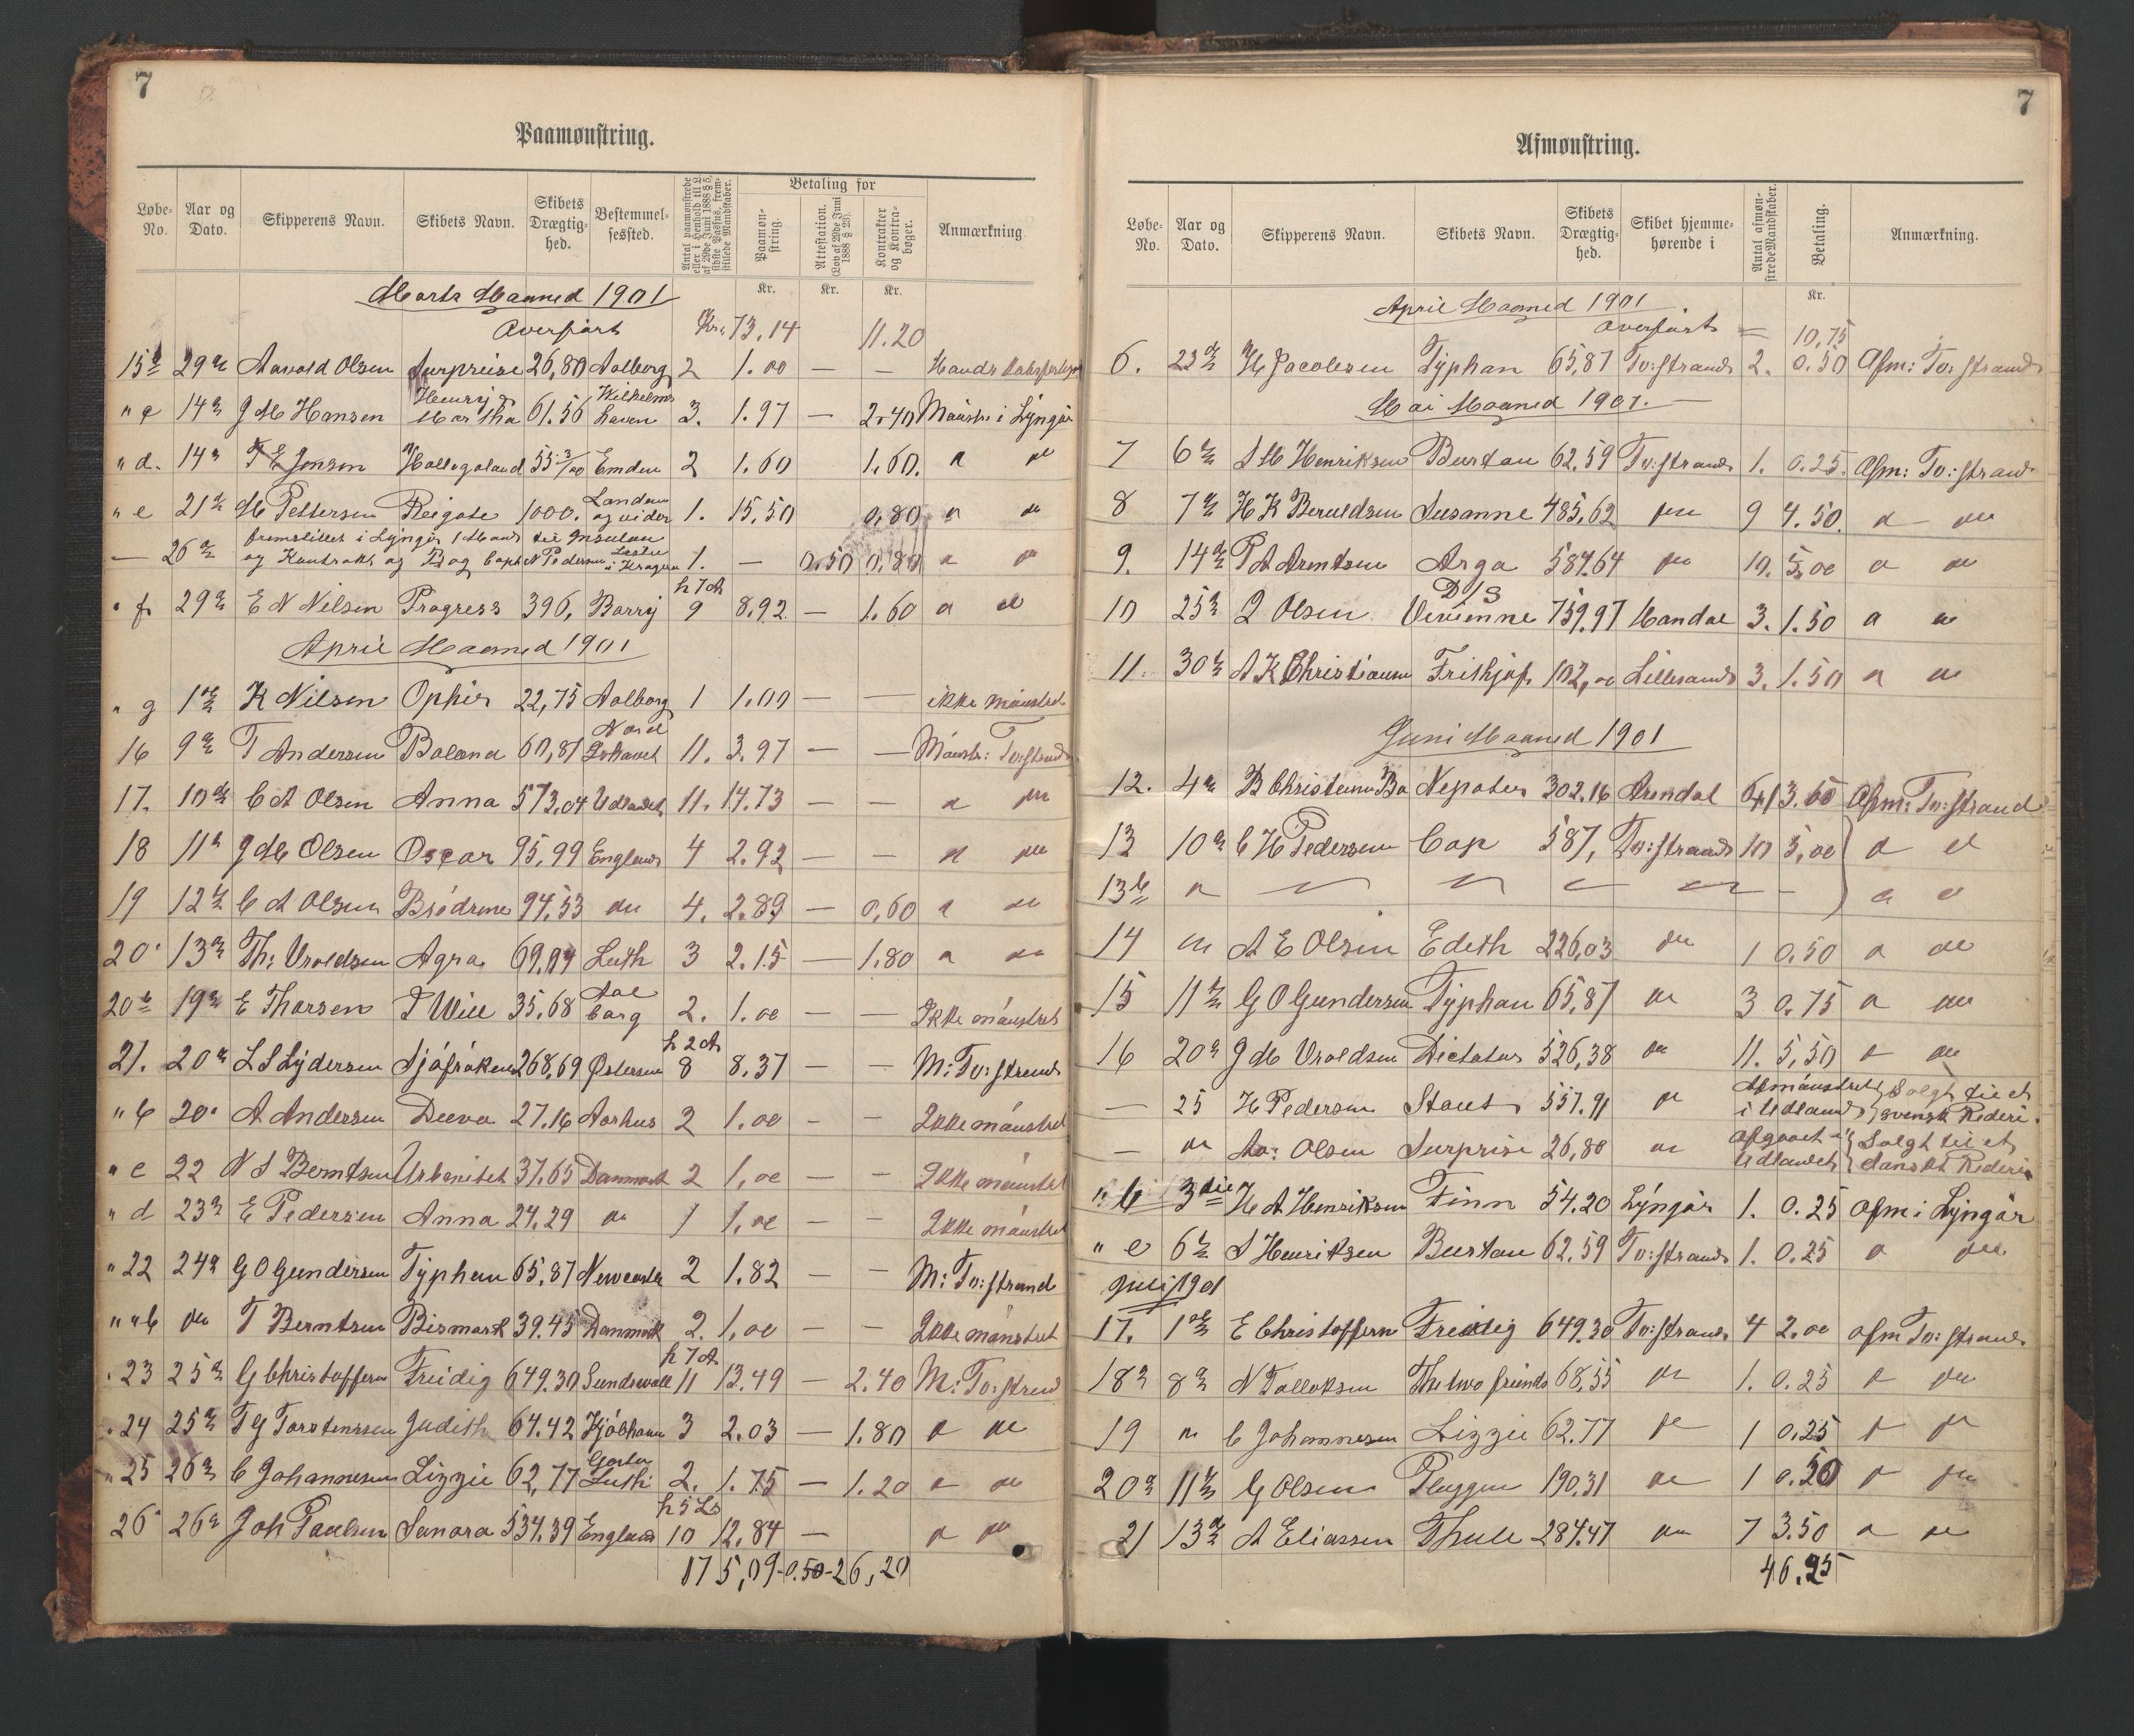 7
Paamønstring.
Løbe-No. Aar og Dato. Skipperens Navn. Skibets Navn. Skibets Drægtighed. Bestemmelsessted. Antal paamønstrede eller i Henhold til L. af 29de Juni 1888 § 5, sidste Passus, fremstillede Mandskaber. Betaling for Paamønstring. Attestation. (Lov af 29de Juni 1888 § 23). Kontrakter og Kontrabøger. Anmærkning
Kr. Kr. Kr.
Marts Maaned 1901
Overført Kr. 73.14 11.20
15b 29de Aavold Olsen Surpreise 26,80 Aalborg 2 1.00 — —
" c 14de J M Hansen Henrij & Martha 61.56 Wilhelmshaven 3. 1.97 — 2.40 Mønstr i Lyngør
" d. 14de T E Jonson Hallogaland 55 3/00 Emden 2 1.60 1.60. " do
" e 21de M Pettersen Reigate 1000. London og vider 1. 15,50 0,80 " do
— 26de fremstillet i Lyngør 1 Mand til Insulan og Kontrakt og Bog Capt N Pedersen i Kragerø 1. — 0,50 0,80 " "
" f 29de E N Nilsen Progress 396, Barrij h 7 A 9 8,92 — 1.60 " do
April Maaned 1901
" g 1ste K Nilsen Ophir 22,75 Aalborg 1 1.00 — — ikke mønstret
16 9de T Andersen Balæna 60,87 Nord Ishavet 11. 3.97 — — Mønstr: Tv:strand
17. 10de C A Olsen Anna 573,04 Udlandet 11. 14.73 — — " do
18 11te J M Olsen Oscar 95,99 England 4 2.92 — — " do
19 12te C A Olsen Brødrene 94.53 do 4. 2.89 — 0,60 " do
20. 13de Th: Uroldsen Agra 69,84 Leith 3 2.15 — 1.80 " do
20b 19de E Thorsen I Will 35.68 Aalborg 2. 1.00 — — Ikke mønstret
21. 20de L S Lydersen Sjøfrøken 268,69 Østersøen h 2 A 8 8.37 — — M: Tv:strand
" b 20. A Andersen Deeva 27.16 Aarhus 2 1.00 — — Ikke mønstret
" c 22 N S Berntsen Urbanitet 37.65 Danmark 2 1,00 — — Ikke mønstret
" d 23de E Pedersen Anna 24.29 do 1 1,00 — — Ikke mønstret
" 22 24de G O Gundersen Typhon 65,87 Newcastle 2 1.82 — — M: Tv:strand
" " b do T Berntsen Bismark 39.45 Danmark 2. 1,00 — — Ikke mønstret
" 23 25de G Christoffersen Freidig 649.30 Sundsvall h 7 A 11 13.49 — 2.40 M: Tv:strand
" 24 25de T G Torstensen Judith 64.42 Kjøbhavn 3 2.03 — 1.80 " do
" 25 26de C Johannesen Lizzie 62,77 Leith 2. 1.75 — 1.20 " do
26. 26de Joh Paulsen Sanora 534.39 England h 5 Ls 10 12.84 — " do
175,09 - 0.50 - 26,20
7
Afmønstring.
Løbe-No. Aar og Dato. Skipperens Navn. Skibets Navn. Skibets Drægtighed. Skibet hjemmehørende i Antal afmønstrede Mandskaber. Betaling. Anmærkning.
Kr.
April Maaned 1901
Overført — 10,75
6. 23de H Jacobsen Typhon 65,87 Tv:strand 2. 0.50 Afm: Tv:strand
Mai Maaned 1901.
7 6te S M Henriksen Burtau 62.59 Tv:strand 1. 0.25. Afm: Tv:strand
8 7de H K Beruldsen Susanne 485,62 do 9 4.50. " do
9. 14de P A Arentsen Arga 587.64 do 10. 5,00 " do
10 25de J Olsen D/S Vivienne 759.97 Mandal 3. 1.50 " do
11. 30te A K Christiansen Frithjof 102,00 Lillesand 3. 1.50 " do
Juni Maaned 1901
12. 4de B Christensen Bo Nepater 302.16 Arendal 3.60 Afm: Tv:strand
13 10de C H Pedersen Cap 587, Tv:strand 10 5,00 " do
13b " " "
14 do A E Olsen Edith 226,03 do 1 0.50 " do
15 11te G O Gundersen Typhon 65,87 do 3 0.75 " do
16 20de J M Uroldsen Dictator 526,38 do 11. 5,50 " do
— 25 H Pedersen Staut 557.91 do Afmønstret i Udland } Solgt til et svensk Rederi.
— do Av: Olsen Surprise 26,80 do Afgaaet Udlandet } Solgt til et dansk Rederi
" b 3die H A Henriksen Finn 54.20 Lyngør 1. 0.25 Afm i Lyngør
" c 6te S Henriksen Burtau 62.59 Tv:strand 1. 0.25 " do
Juli 1901
17. 1ste E Christoffersen Freidig 649.30 Tv:strand 4 2.00 afm Tv:strand
18de 8de N Tallaksen The two friends 68,55 do 1. 0.25 " do
19 " C Johannesen Lizzie 62.77 do 1 0.25 " do
20de 11te G Olsen Pleggen 190.31 do 1 0.50 " do
21 13de A Eliassen Thule 284.47 do 7 3.50 " do
46.25